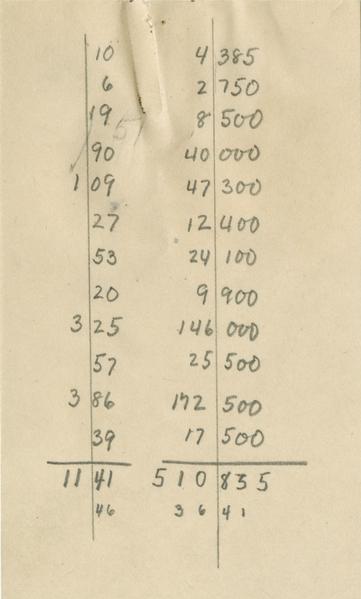 10 4 385
6 2 750
19 8 500
90 40 000
1 09 47 300
27 12 400
53 24 100
20 9 900
3 25 146 000
57 25 500
3 86 172 500
39 17 500
11 41 5 1 0 8 3 5
46 3 6 4 1